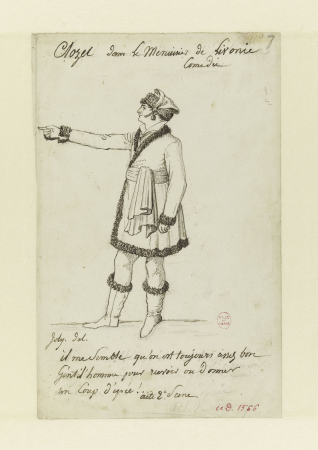 7
Clozel dans le Menuisier de Livonie
Comedie
Joly. Del.
il me Semble qu'on est toujours assez bon
Gentil homme pour recevoir ou donner
un Coup d'épée! acte 2e Scene